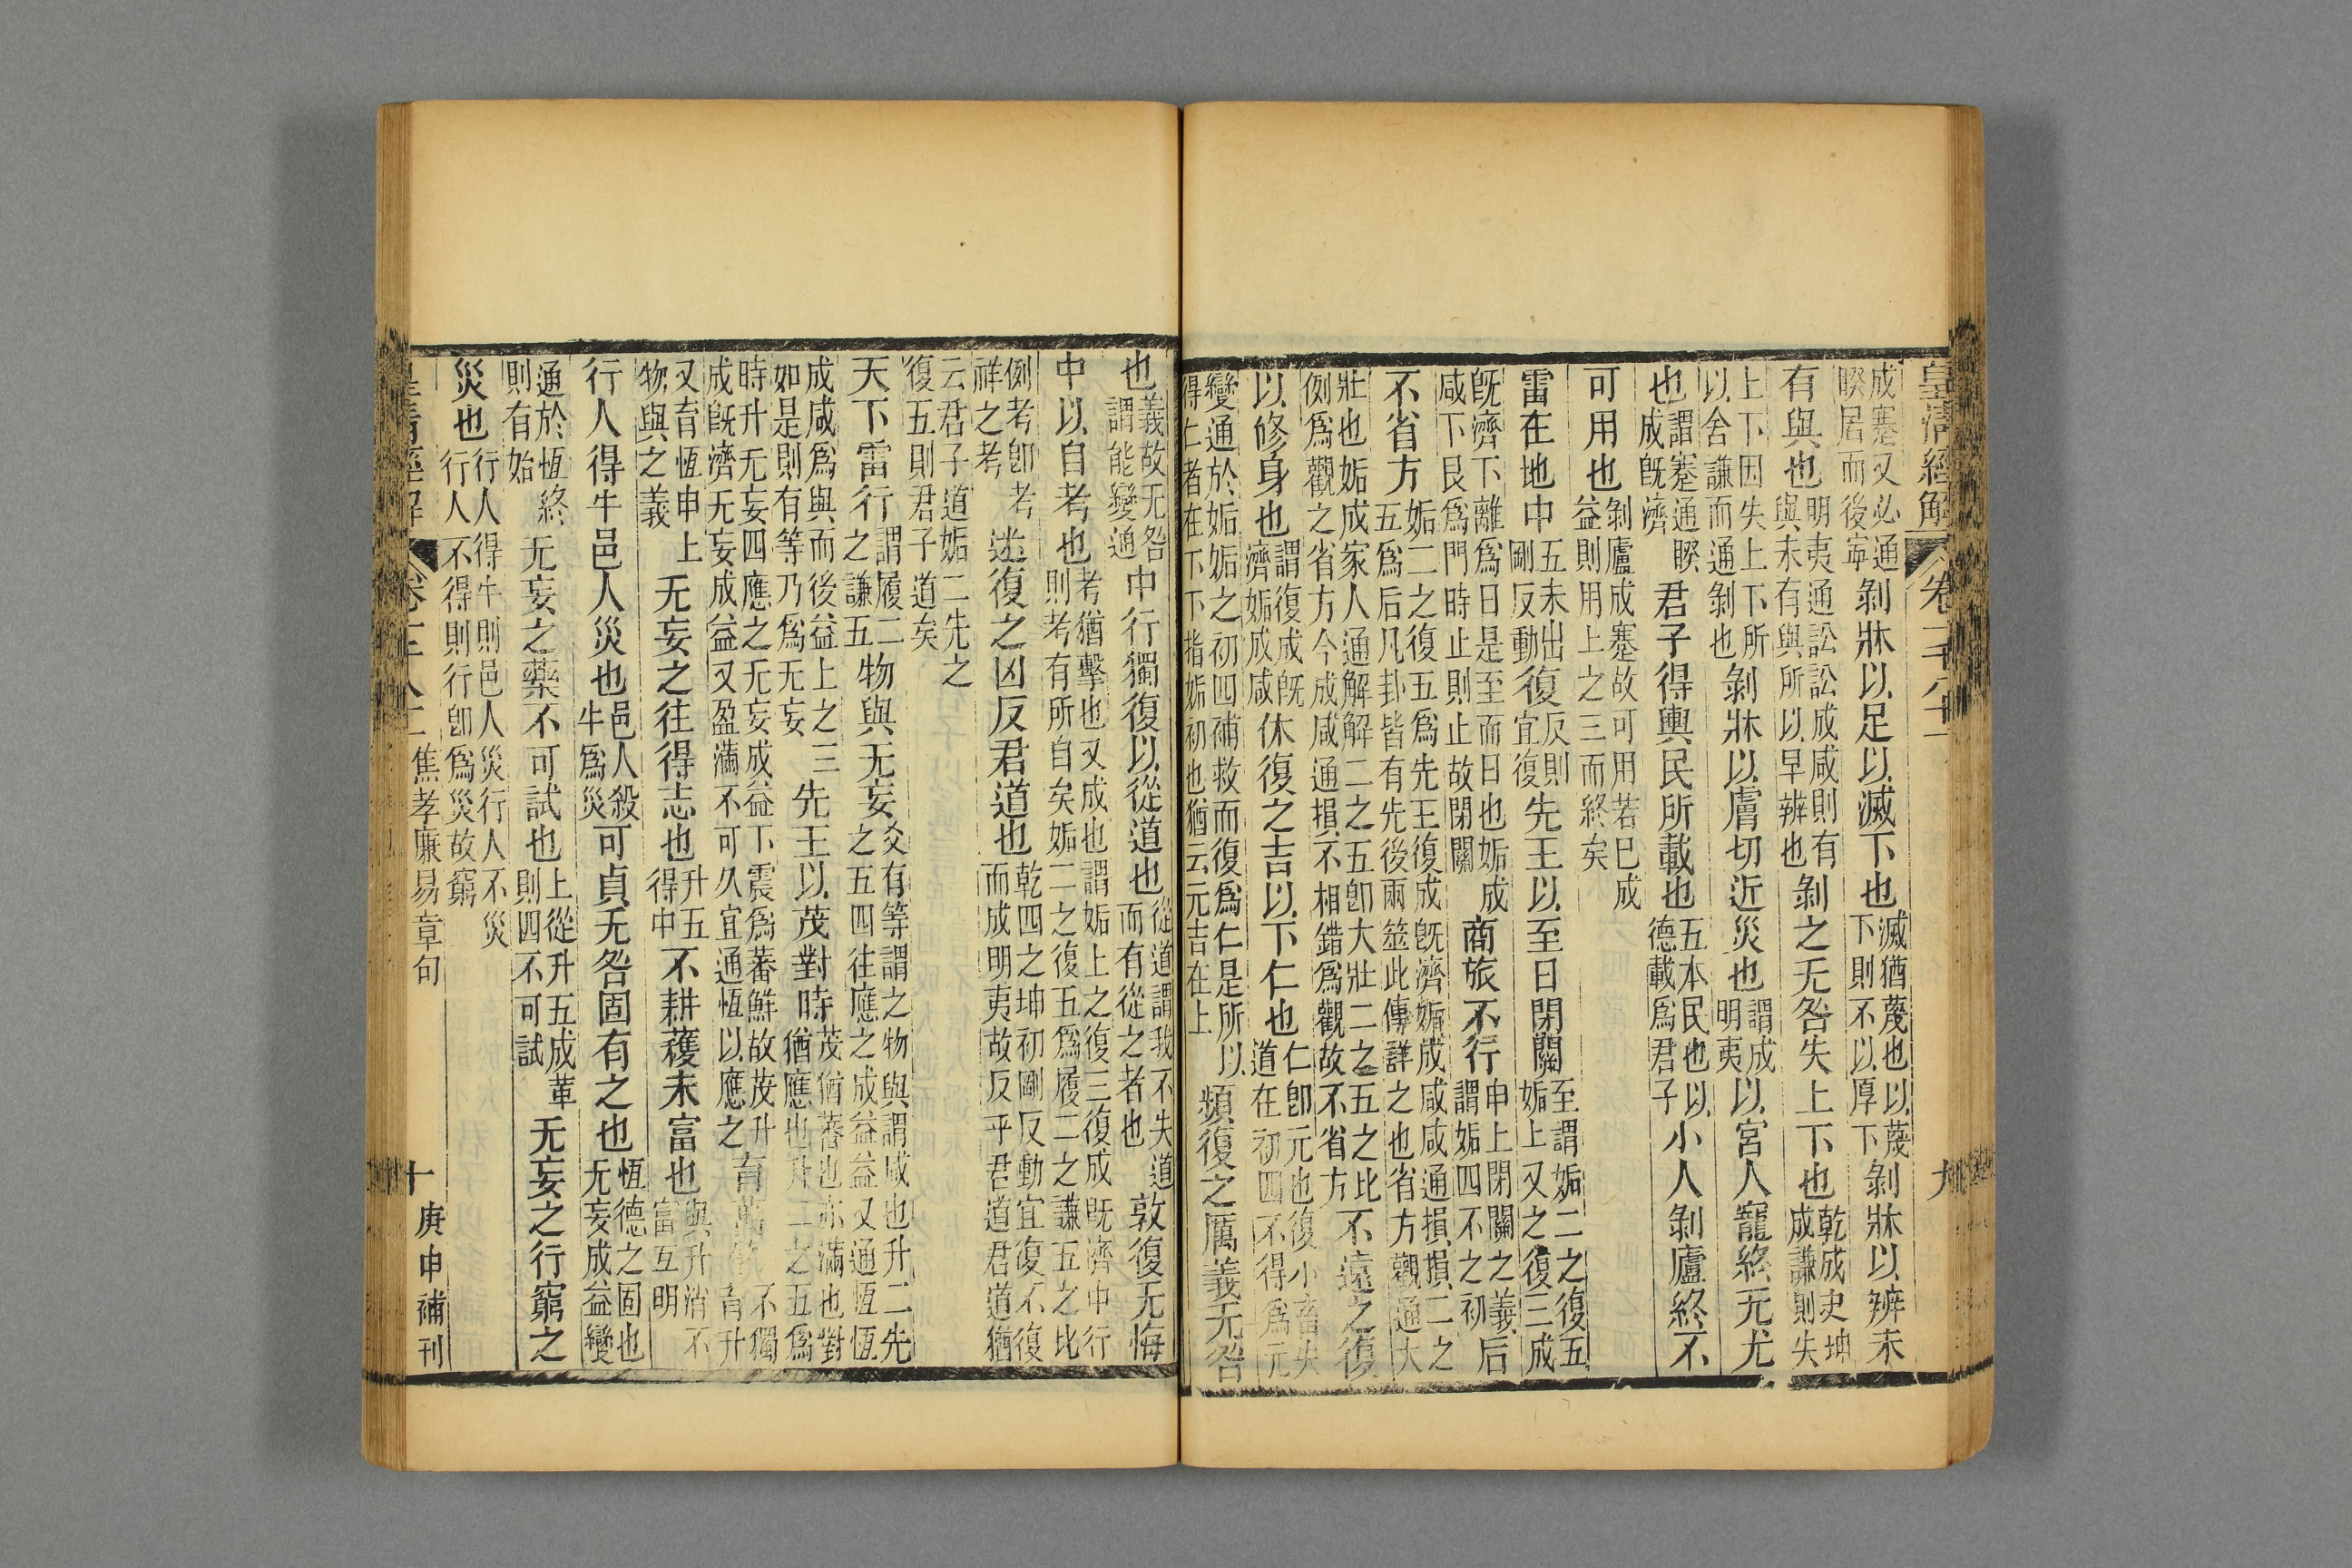 皇清經解 卷一千八十一 九
成蹇又必通
睽居而後寧
剝牀以足以滅下也
滅猶蔑也以蔑
下則不以厚下
剝牀以辨未
有與也
明夷通訟訟成咸則有
與未有與所以早辨也
剝之无咎失上下也
乾成夬坤
成謙則失
上下因失上下所
以舍謙而通剝也
剝牀以膚切近災也
謂成
明夷
以宮人寵終无尤
也
謂蹇通睽
成旣濟
君子得輿民所載也
五本民也以
德載爲君子
小人剝廬終不
可用也
剝廬成蹇故可用若已成
益則用上之三而終矣
雷在地中
五未出
剛反動
復
反則
宜復
先王以至日閉關
至謂姤二之復五
姤上又之復三成
旣濟下離爲日是至而日也姤成
咸下艮爲門時止則止故閉關
商旅不行
申上閉關之義后
謂姤四不之初
不省方
姤二之復五爲先王復成旣濟姤成咸咸通損損二之
五爲后凡卦皆有先後兩筮此傳詳之也省方觀通大
壯也姤成家人通解解二之五卽大壯二之五之比
例爲觀之省方今成咸通損不相錯爲觀故不省方
不遠之復
以修身也
謂復成旣
濟姤成咸
休復之吉以下仁也
仁卽元也復小畜失
道在初四不得爲元
變通於姤姤之初四補救而復爲仁是所以
得仁者在下下指姤初也猶云元吉在上
頻復之厲義无咎
也
義故无咎
謂能變通
中行獨復以從道也
從道謂我不失道
而有從之者也
敦復无悔
中以自考也
考猶擊也又成也謂姤上之復三復成旣濟中行
則考有所自矣姤二之復五爲履二之謙五之比
例考卽考
祥之考
迷復之凶反君道也
乾四之坤初剛反動宜復不復
而成明夷故反乎君道君道猶
云君子道姤二先之
復五則君子道矣
天下雷行
謂履二
之謙五
物與无妄
爻有等謂之物與謂咸也升二先
之五四往應之成益益又通恆恆
成咸爲與而後益上之三
如是則有等乃爲无妄
先王以茂對時
茂猶蕃也亦滿也對
猶應也升二之五爲
時升无妄四應之无妄成益下震爲蕃鮮故茂升
成旣濟无妄成益又盈滿不可久宜通恆以應之
育萬物
不獨
育升
又育恆申上
物與之義
无妄之往得志也
升五
得中
不耕穫未富也
與升消不
富互明
行人得牛邑人災也
邑人殺
牛爲災
可貞无咎固有之也
恆德之固也
无妄成益變
通於恆終
則有始
无妄之藥不可試也
上從升五成革
則四不可試
无妄之行窮之
災也
行人得牛則邑人災行人不災
行人不得則行卽爲災故窮
皇清經解 卷一千八十一 焦孝廉易章句 十 庚申補刊